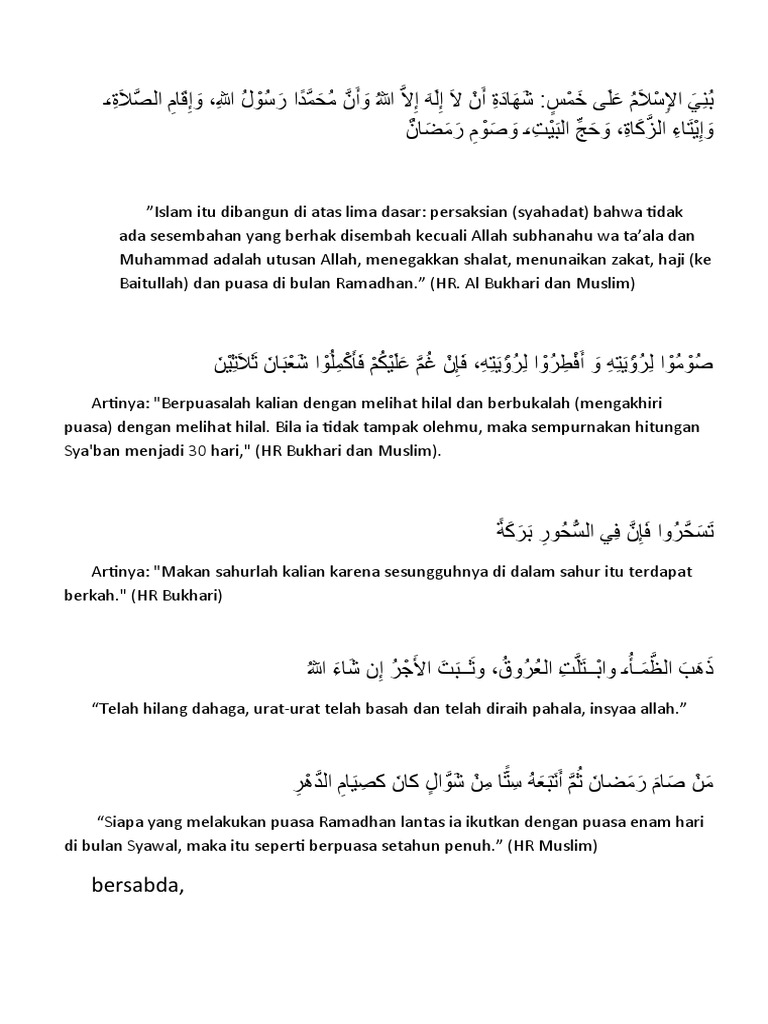 بُنِيَ الإِسْلَامُ عَلَى خَمْسٍ: شَهَادَةِ أَنْ لاَ إِلَهَ إِلاَّ اللهُ وَأَنَّ مُحَمَّدًا رَسُوْلُ اللهِ، وَإِقَامِ الصَّلاَةِ،
وَإِيْتَاءِ الزَّكَاةِ، وَحَجِّ البَيْتِ، وَصَوْمِ رَمَضَانٌ
”Islam itu dibangun di atas lima dasar: persaksian (syahadat) bahwa tidak
ada sesembahan yang berhak disembah kecuali Allah subhanahu wa ta’ala dan
Muhammad adalah utusan Allah, menegakkan shalat, menunaikan zakat, haji (ke
Baitullah) dan puasa di bulan Ramadhan.” (HR. Al Bukhari dan Muslim)
صُوْمُوْا لِرُؤْيَتِهِ وَ أَفْطِرُوْا لِرُؤْيَتِهِ، فَإِنْ غُمَّ عَلَيْكُمْ فَأَكْمِلُوْا شَعْبَانَ ثَلاَثِيْنَ
Artinya: "Berpuasalah kalian dengan melihat hilal dan berbukalah (mengakhiri
puasa) dengan melihat hilal. Bila ia tidak tampak olehmu, maka sempurnakan hitungan
Sya'ban menjadi 30 hari," (HR Bukhari dan Muslim).
تَسَحَّرُوا فَإِنَّ فِي السُّحُورِ بَرَكَةً
Artinya: "Makan sahurlah kalian karena sesungguhnya di dalam sahur itu terdapat
berkah." (HR Bukhari)
ذَهَبَ الظَّمَـأُ، وابْــتَلَّتِ العُرُوقُ، وثَــبَتَ الأَجْرُ إِن شَاءَ اللهُ
“Telah hilang dahaga, urat-urat telah basah dan telah diraih pahala, insyaa allah.”
مَنْ صَامَ رَمَضانَ ثُمَّ أَتْبَعَهُ سِتًّا مِنْ شَوَّالٍ كانَ كصِيَامِ الدَّهْرِ
“Siapa yang melakukan puasa Ramadhan lantas ia ikutkan dengan puasa enam hari
di bulan Syawal, maka itu seperti berpuasa setahun penuh.” (HR Muslim)
bersabda,